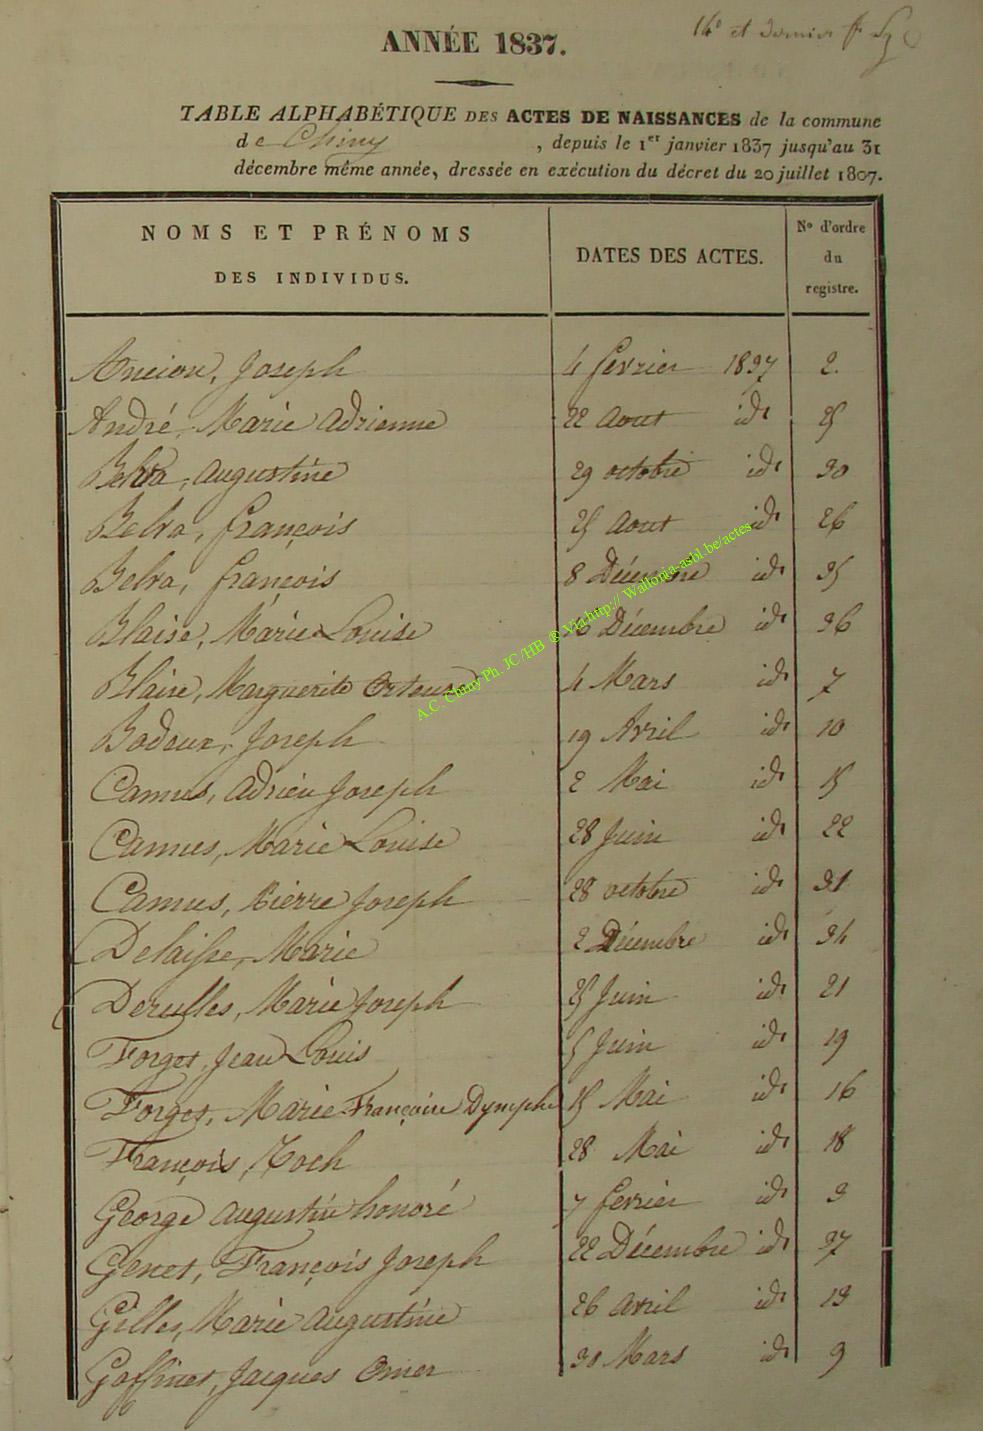 14e et dernier f.
ANNÉE 1837.
TABLE ALPHABÉTIQUE DES ACTES DE NAISSANCES de la commune
de Chiny , depuis le 1er janvier 1837 jusqu'au 31
décembre même année, dressée en exécution du décret du 20 juillet 1807.
NOMS ET PRÉNOMS DES INDIVIDUS. DATES DES ACTES. No d'ordre du registre.
Ancion, Joseph 4 fevrier 1837 2.
André, Marie Adrienne 22 Aout id. 25
Belva, Augustine 29 octobre id. 30
Belva, françois 25 Aout id. 26
Belva, françois 8 Décembre id. 35
Blaise, Marie Louise 16 Décembre id. 36
Blaise, Marguerite Ortense 4 Mars id. 7
Bodeux, Joseph 19 Avril id. 10
Camus, Adrien Joseph 2 Mai id. 15
Camus, Marie Louise 28 Juin id. 22
Camus, Pierre Joseph 28 octobre id. 31
Delaisse, Marie 2 Décembre id. 34
Derulles, Marie Joseph 25 Juin id. 21
Forget, Jean Louis 5 Juin id. 19
Forget, Marie Françoise Dymphe 15 Mai id. 16
François, Roch 28 Mai id. 18
George Augustin honoré 7 fevrier id. 3
Genet, François Joseph 22 Décembre id. 37
Gilles, Marie Augustine 26 avril id. 13
Goffinet, Jacques Omer 30 Mars id. 9
A.C. Chiny Ph. JC /HB ® Via http:// Wallonia-asbl.be/actes